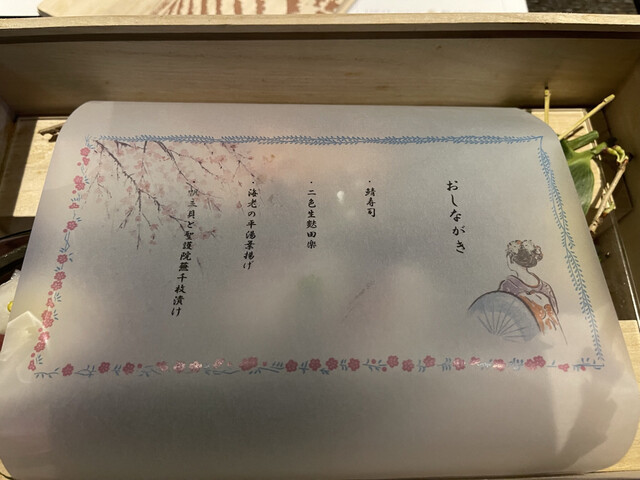 おしながき
・鯖寿司
・二色生麩田楽
・海老の平湯葉揚げ
・帆立貝と聖護院蕪千枚漬け